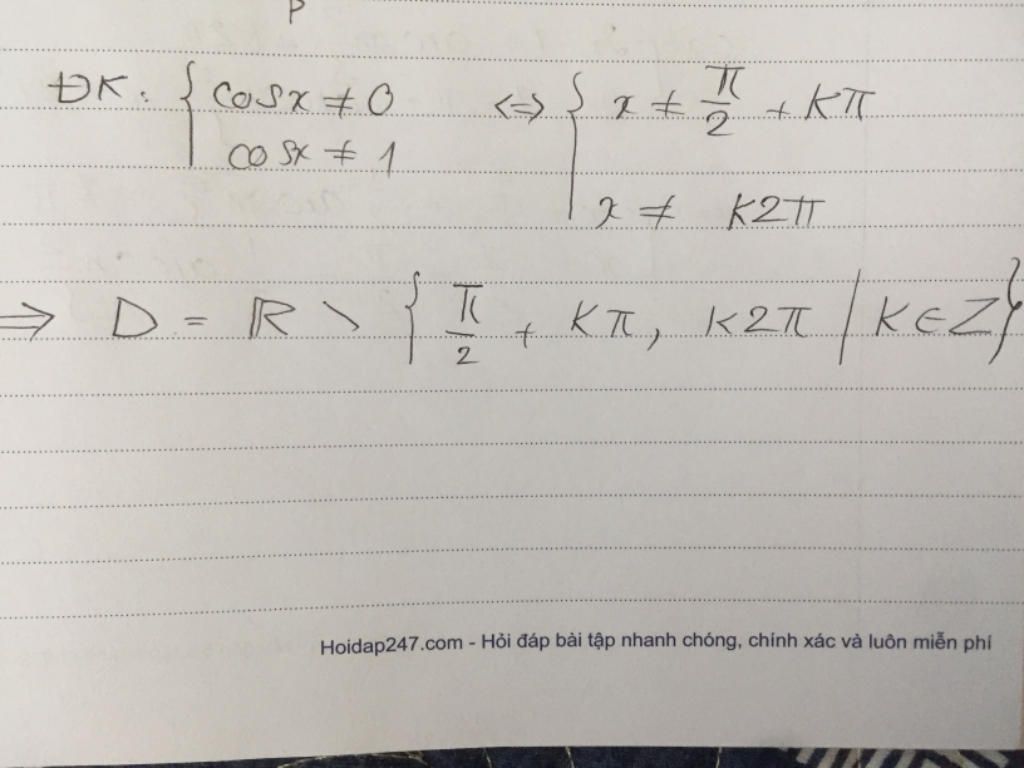 P
ĐK: { cosx ≠ 0 <=> { x ≠ π/2 + Kπ
cosx ≠ 1 x ≠ K2π
=> D = ℝ \ { π/2 + Kπ, K2π | K ∈ Z }
Hoidap247.com - Hỏi đáp bài tập nhanh chóng, chính xác và luôn miễn phí